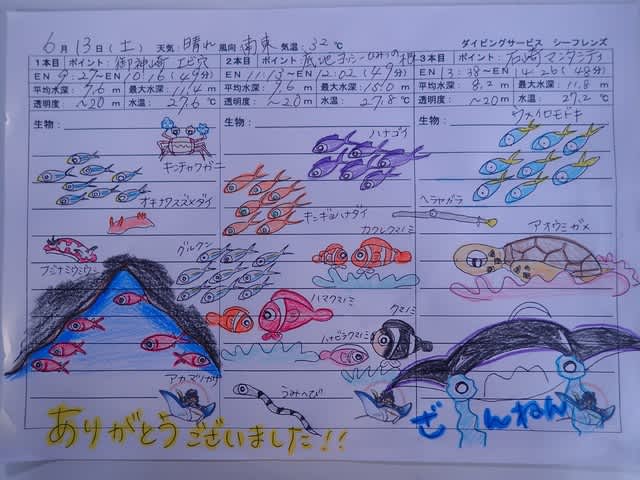 6月13日(土) 天気:晴れ 風向:南東 気温:32℃ ダイビングサービス シーフレンズ
1本目 ポイント:御神崎 エビ穴
EN 9:27~EN 10:16(49分)
平均水深:9.6m 最大水深:11.4m
透明度:~20m 水温:27.6℃
生物:
キンチャクガニ
オキナワスズメダイ
フジナミウミウシ
グルクン
アカマツカサ
2本目 ポイント:底地ヨシーnoみいの根
EN 11:13~EN 12:02(49分)
平均水深:9.6m 最大水深:15.0m
透明度:~20m 水温:27.8℃
生物:
ハナゴイ
キンギョハナダイ
カクレクマノミ
ハマクマノミ
クマノミ
ハナビラクマノミ
うみへび
3本目 ポイント:石崎マンタシティ
EN 13:38~EN 14:26(48分)
平均水深:8.2m 最大水深:11.8m
透明度:~20m 水温:27.2℃
生物:
ウメイロモドキ
ヘラヤガラ
アオウミガメ
ありがとうございました!!
ざんねん